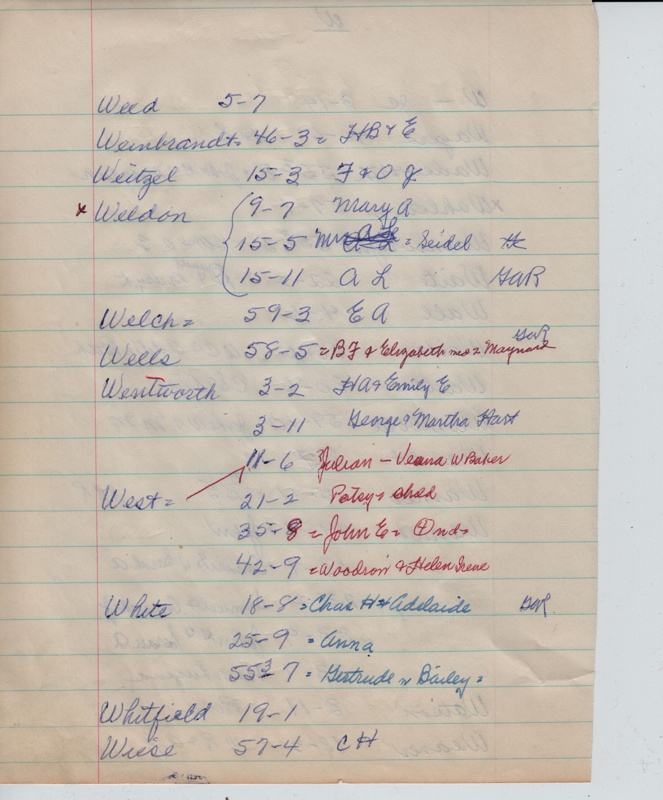 W
Weed 5-7
Weinbrandt 46-3 = HB & E
Weitzel 15-3 F & O J
x Weldon 9-7 Mary A
15-5 Mrs = Seidel
15-11 A L GAR
Welch = 59-3 E A
GAR
Wells 58-5 = BF & Elizabeth Maynard
Wentworth 3-2 HA & Emily E
3-11 George & Martha Hart
11-6 Julian - Veana W Baker
West = 21-2 Potey =
35-8 = John E =
42-9 = Woodrow & Helen Irene
White 18-8 = Chas H & Adelaide GAR.
25-9 = Anna
553-7 = Gertrude Bailey =
Whitfield 19-1
Wiese 57-4 CH